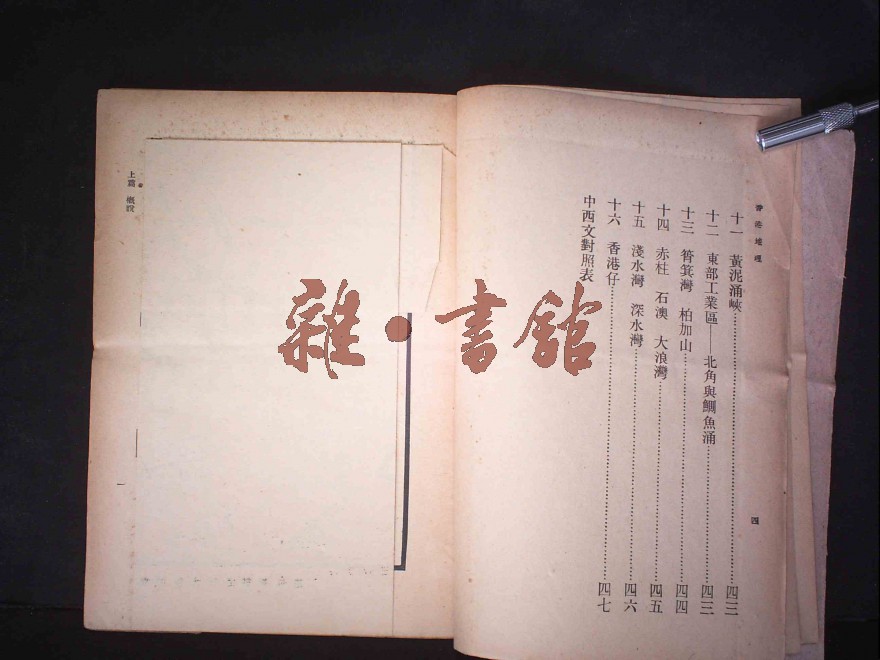 香港地理
十一 黃泥涌峽……四三
十二 東部工業區——北角與鰂魚涌……四三
十三 筲箕灣 柏加山……四四
十四 赤柱 石澳 大浪灣……四五
十五 淺水灣 深水灣……四六
十六 香港仔……四七
中西文對照表
四
上篇 概說
一
雜·書館